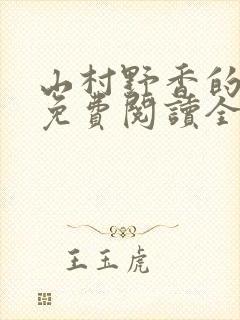 山村野香的
免費閱讀全
王玉虎